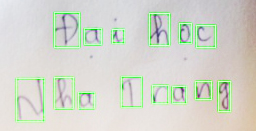 Đại học
Nha Trang